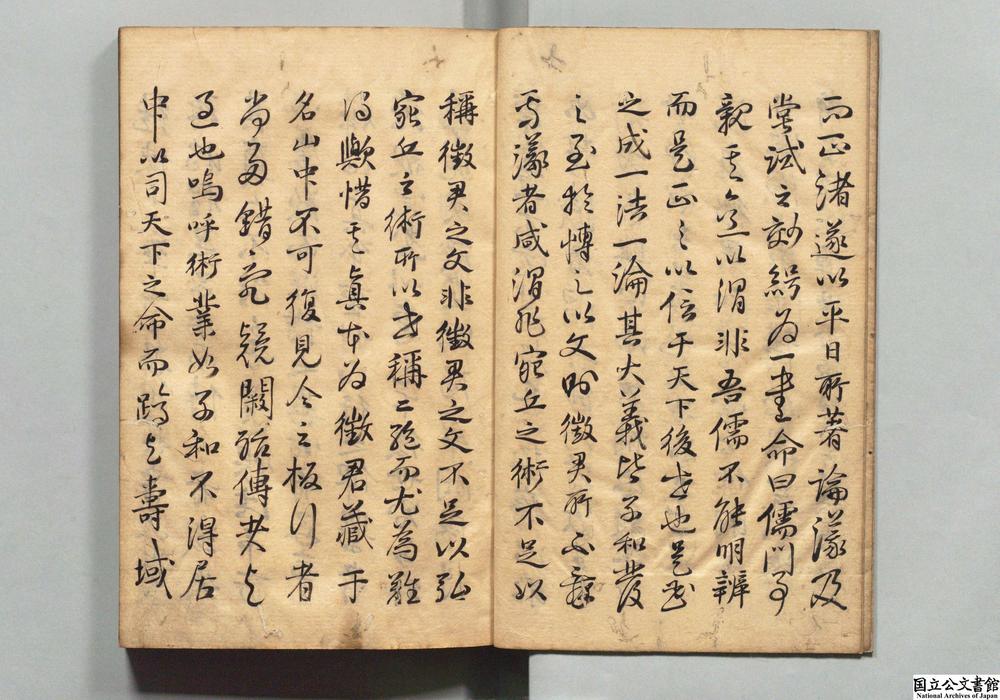 而正諸遂以平日所著論議及
嘗試之效綴為一書命曰儒門事
親其意以謂非吾儒不能明辨
而是正之以信于天下後世也是書
之成一法一論其大義皆子和發
之至於博之以文則徵君所不辭
焉議者咸謂非宛丘之術不足以
稱徵君之文非徵君之文不足以弘
宛丘之術所以世稱二絕而尤為難
得歟惜其真本為徵君藏于
名山中不可復見今之板行者
尚多錯亂疑闕殆傳者之
過也嗚呼術業如子和不得居
中以司天下之命而躋之壽域
国立公文書館
National Archives of Japan